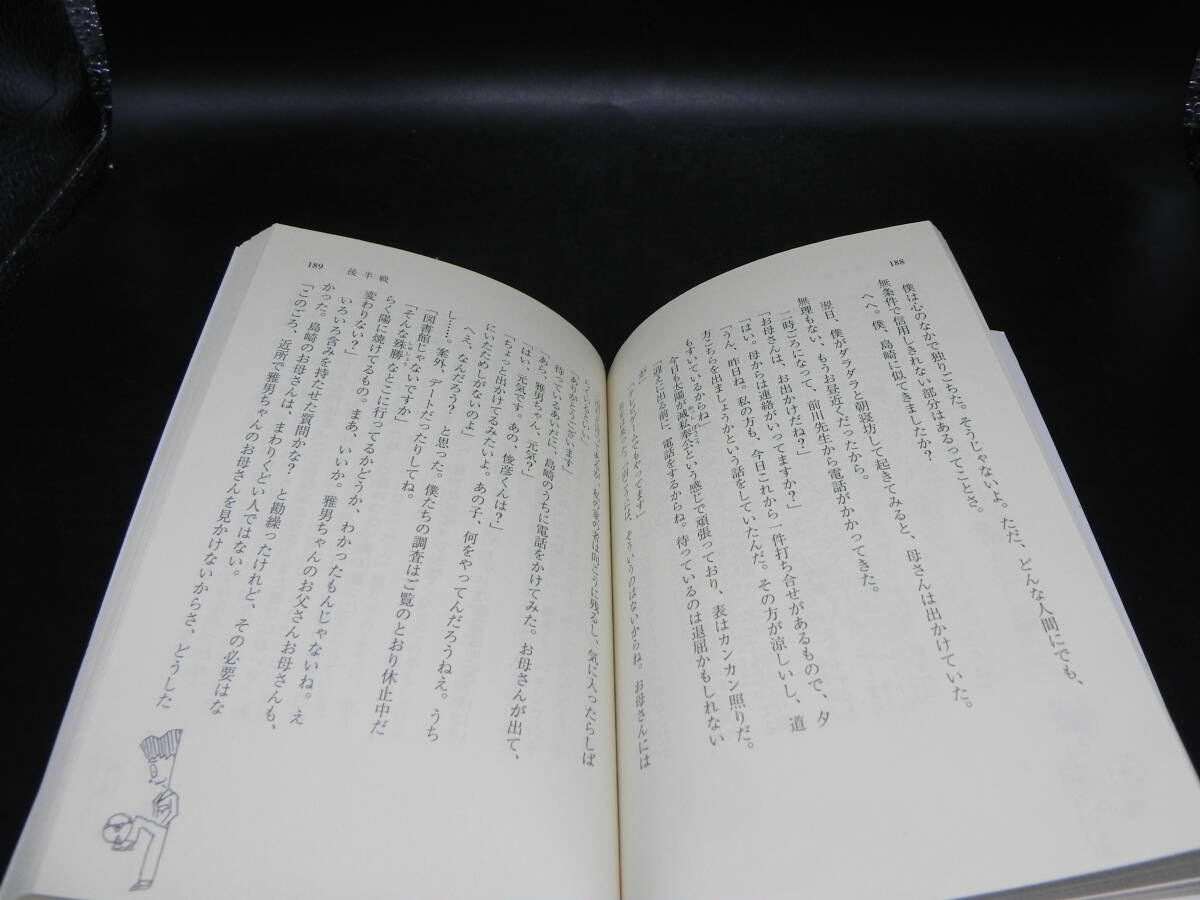 188
僕は心のなかで独りごちた。そうじゃないよ。ただ、どんな人間にでも、
無条件で信用しきれない部分はあるってことさ。
へへ。僕、島崎に似てきましたか?
翌日、僕がダラダラと朝寝坊して起きてみると、母さんは出かけていた。
無理もない、もうお昼近くだったから。
二時ごろになって、前川先生から電話がかかってきた。
「お母さんは、お出かけだね?」
「はい。母からは連絡がいってますか?」
「うん、昨日ね。私の方も、今日これから一件打ち合せがあるもので、夕
方こちらを出ましょうかという話をしていたんだ。その方が涼しいし、道
もすいているからね」
今日も太陽が滅私奉公という感じで頑張っており、表はカンカン照りだ。
「迎えに出る前に、電話をするからね。待っているのは退屈かもしれない
が」
「テレビゲームでもやってます」
そういうのはないからね。お母さんには
189
後半戦
私の家の者は向こうに残るし、気に入ったらしば
らくいるといい」
「ありがとうございます」
待っているあいだに、島崎のうちに電話をかけてみた。お母さんが出て、
「あら、雅男ちゃん、元気?」
「はい、元気です。あの、俊彦くんは?」
「ちょっと出かけてるみたいよ。あの子、何をやってんだろうねえ。うち
にいたためしがないのよ」
へえ、なんだろう? と思った。僕たちの調査はご覧のとおり休止中だ
し……。案外、デートだったりしてね。
「図書館じゃないですか」
「そんな殊勝なとこに行ってるかどうか、わかったもんじゃないね。え
らく陽に焼けてるもの。まあ、いいか。雅男ちゃんのお父さんお母さんも、
変わりない?」
いろいろ含みを持たせた質問かな? と勘繰ったけれど、その必要はな
かった。島崎のお母さんは、まわりくどい人ではない。
「このごろ、近所で雅男ちゃんのお母さんを見かけないからさ、どうした